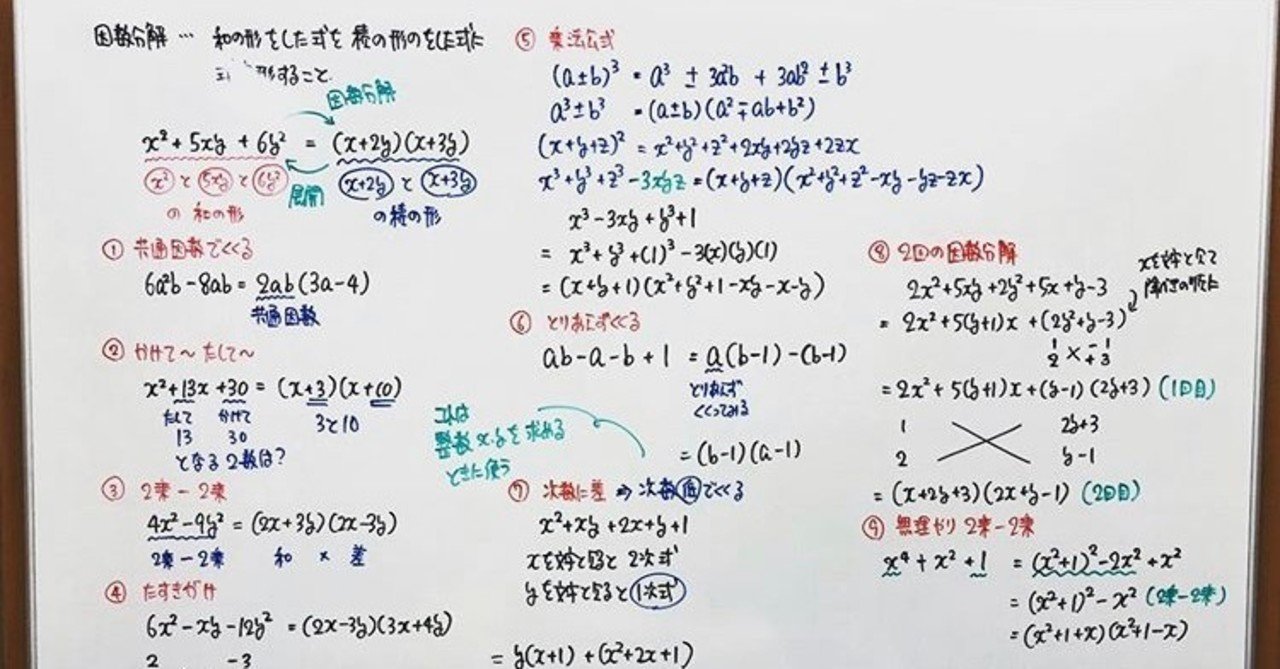 因数分解… 和の形をした式を積の形のをした式に
形すること
因数分解
x²+5xy+6y² = (x+2y)(x+3y)
展開
x²と5xyと6y² x+2yとx+3y
の和の形 の積の形
① 共通因数でくくる
6a²b-8ab=2ab(3a-4)
共通因数
② かけて~たして~
x²+13x+30=(x+3)(x+10)
たして かけて 3と10
13 30
となる2数は?
③ 2乗-2乗
4x²-9y²=(2x+3y)(2x-3y)
2乗-2乗 和 × 差
④ たすきがけ
6x²-xy-12y²=(2x-3y)(3x+4y)
2 -3
⑤ 乗法公式
(a±b)³ = a³±3a²b+3ab²±b³
a³±b³ =(a±b)(a²∓ab+b²)
(x+y+z)²=x²+y²+z²+2xy+2yz+2zx
x³+y³+z³-3xyz=(x+y+z)(x²+y²+z²-xy-yz-zx)
x³-3xy+y³+1
= x³+y³+(1)³-3(x)(y)(1)
=(x+y+1)(x²+y²+1-xy-x-y)
⑥ とりあえずくくる
ab-a-b+1 =a(b-1)-(b-1)
とりあえず
くくってみる
=(b-1)(a-1)
これは
整数x,yを求める
ときに使う
⑦ 次数に差⇒次数低でくくる
x²+xy+2x+y+1
xを文字と見ると 2次式
yを文字と見ると 1次式
=y(x+1)+(x²+2x+1)
⑧ 2回の因数分解
xを文字と見て
降べきの順に
2x²+5xy+2y²+5x+y-3
=2x²+5(y+1)x+(2y²+y-3)
1 -1
2 × +3
=2x²+5(y+1)x+(y-1)(2y+3) (1回目)
1 2y+3
2 y-1
=(x+2y+3)(2x+y-1) (2回目)
⑨ 無理やり2乗-2乗
x⁴+x²+1 =(x²+1)²-2x²+x²
=(x²+1)²-x² (2乗-2乗)
=(x²+1+x)(x²+1-x)